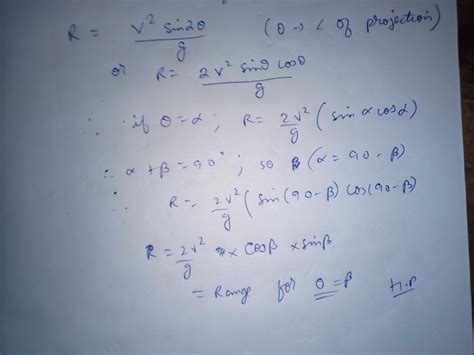 R = v² sin2θ / g (θ → ∠ of projection)
or R = 2v² sinθ cosθ / g
∴ if θ = α ; R = 2v²/g (sin α cos α)
∴ α + β = 90° ; so (α = 90 - β)
∴ R = 2v²/g (sin (90 - β) cos (90 - β)
R = 2v²/g × cosβ × sinβ
= Range for θ = β H.P